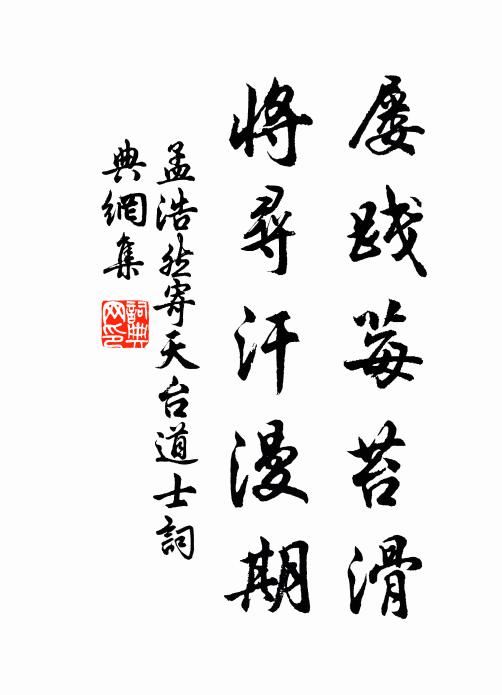 屢踐莓苔滑
將尋汗漫期
孟浩然寄天台道士詞
典網集
詞典
网印